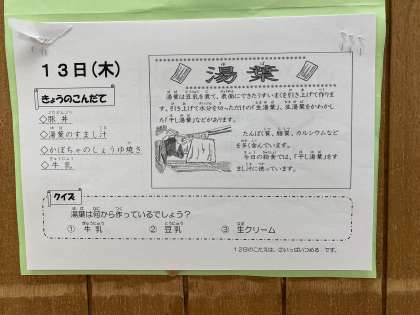 13日(木)
きょうのこんだて
◇豚丼
◇湯葉のすまし汁
◇かぼちゃのしょうゆ焼き
◇牛乳
湯葉
湯葉は豆乳を煮て、表面にできたうすいまくを引き上げて作りま
す。引き上げて水分を切っただけの「生湯葉」、生湯葉をかわかし
た「干し湯葉」などがあります。
たんぱく質、脂質、カルシウムなど
を多く含んでいます。
今日の給食では、「干し湯葉」をす
まし汁に使っています。
クイズ
湯葉は何から作っているでしょう?
① 牛乳 ② 豆乳 ③ 生クリーム
12日のこたえは、②いっぱいつめる です。